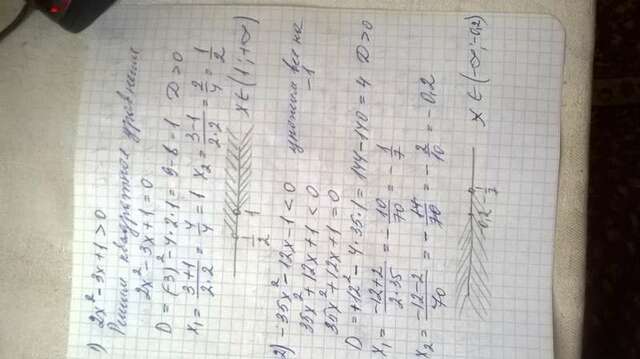 1) 2x² - 3x + 1 > 0
Решим квадратное уравнение
2x² - 3x + 1 = 0
D = (-3)² - 4·2·1 = 9 - 8 = 1 D > 0
x₁ = (3+1)/(2·2) = 4/4 = 1 x₂ = (3-1)/(2·2) = 2/4 = 1/2
1/2 1 x ∈ (1; +∞)
2) -35x² - 12x - 1 < 0 умножим все на -1
35x² + 12x + 1 < 0
35x² + 12x + 1 = 0
D = +12² - 4·35·1 = 144 - 140 = 4 D > 0
x₁ = (-12+2)/(2·35) = -10/70 = -1/7
x₂ = (-12-2)/70 = -14/70 = -2/10 = -0,2
-0,2 -1/7 x ∈ (-∞; -0,2)